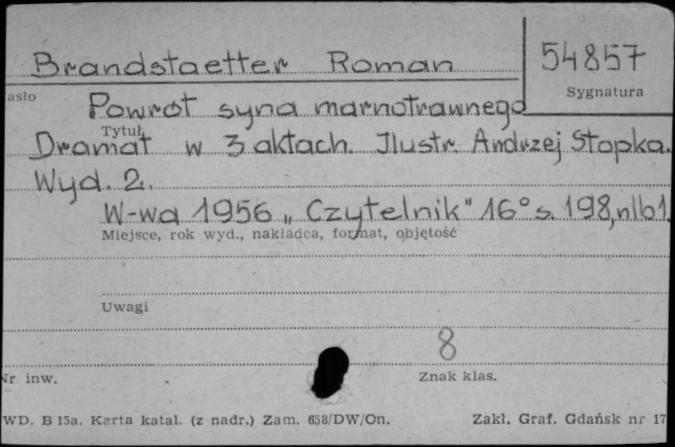 Brandstaetter Roman
54857
asło
Sygnatura
Powrót syna marnotrawnego
Tytuł
Dramat w 3 aktach. Ilustr. Andrzej Stopka.
Wyd. 2.
W-wa 1956 „Czytelnik" 16° s. 198, nlb 1.
Miejsce, rok wyd., nakładca, format, objętość
Uwagi
8
Nr inw.
Znak klas.
WD. B 15a. Karta katal. (z nadr.) Zam. 658/DW/On.
Zakl. Graf. Gdańsk nr 17